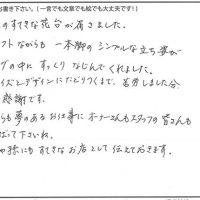 お書き下さい。(一言でも文章でも絵でも大丈夫です!)
のすてきな花台が届きました。
フトながらも一本脚のシンプルな立ち姿が
グの中にすっくりなじんでくれました。
イズとデザインにたどりつくまで、苦労しました分、
感謝です。
らも夢のあるお仕事にオーナーさんもスタッフの皆さんも
ばって下さいね。
や孫にもすてきなお店として伝えておきます。